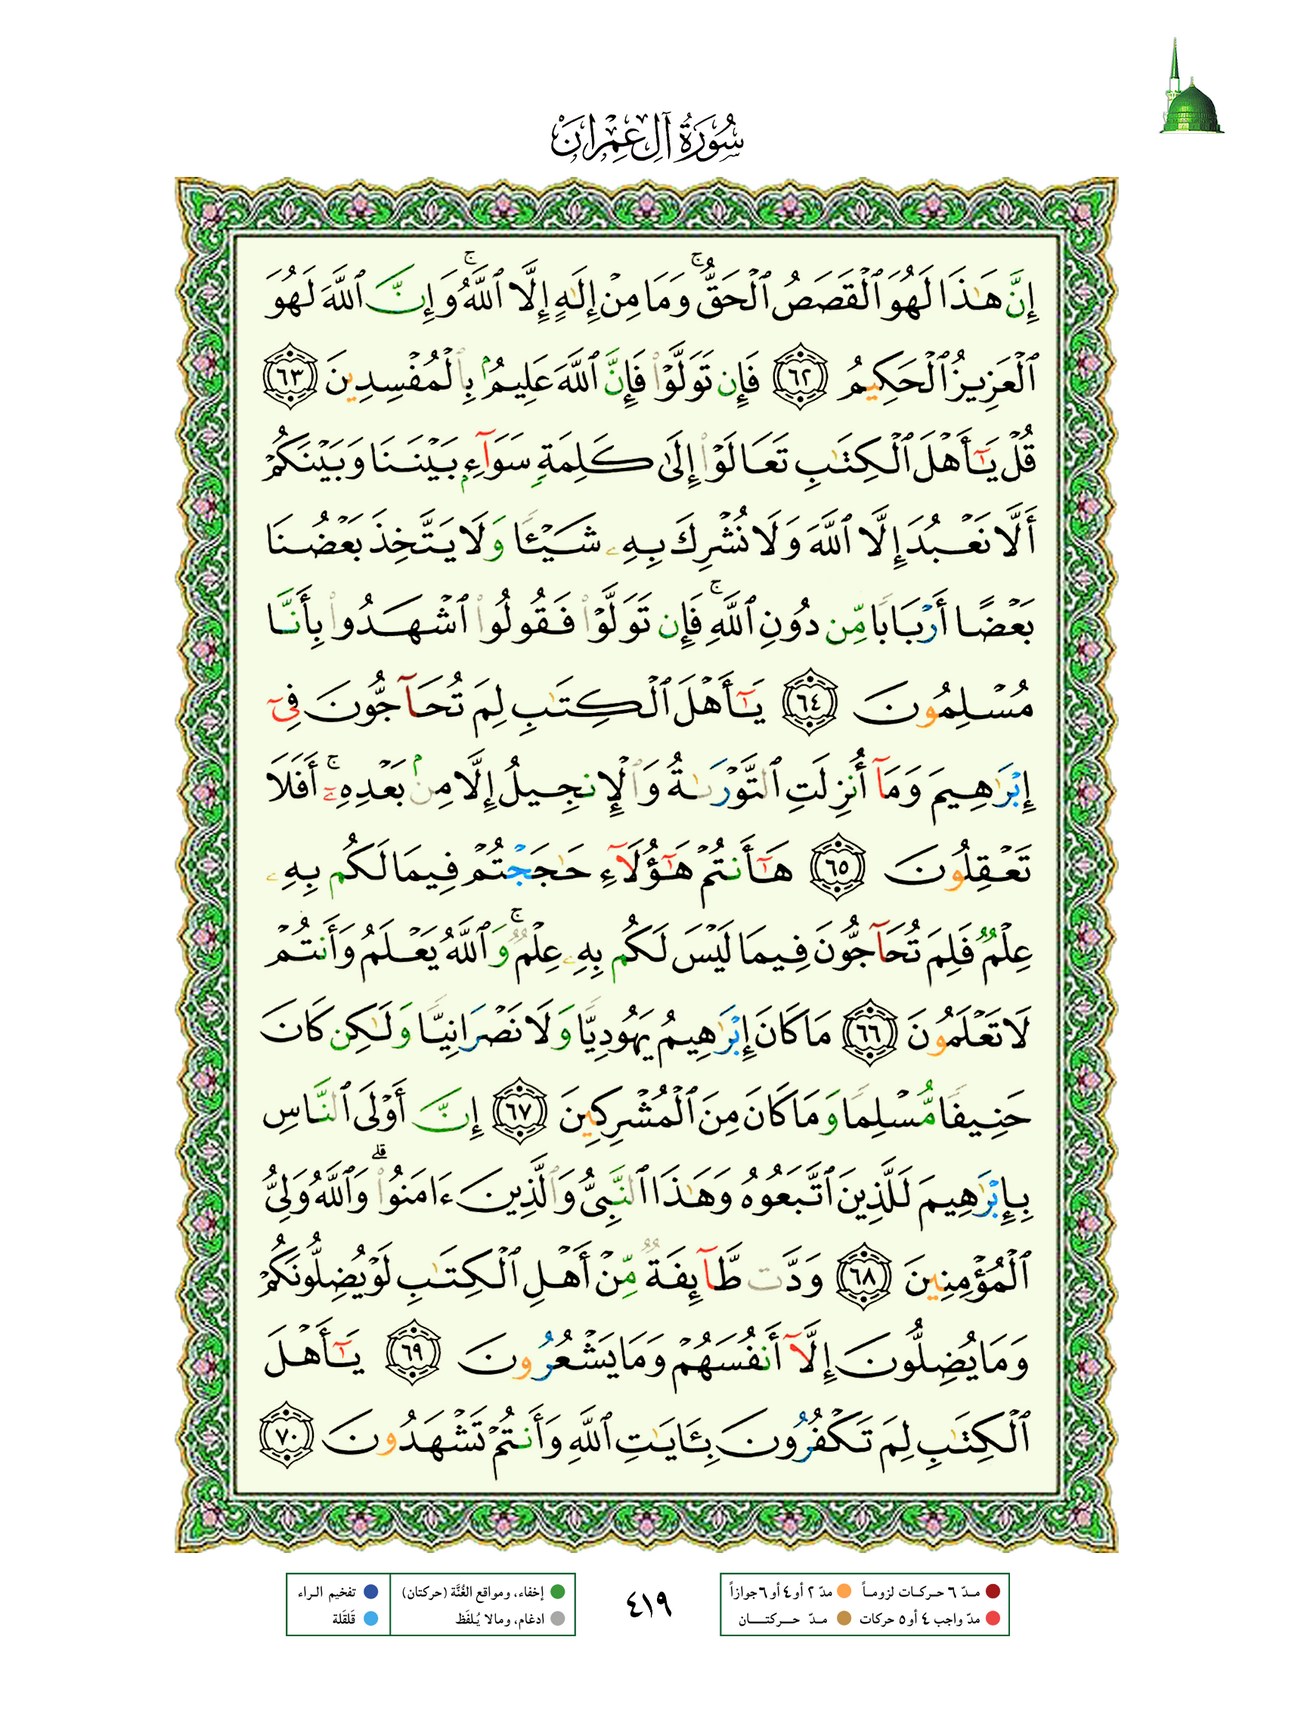 سُورَةُ آلِ عِمْرَانَ
إِنَّ هَـٰذَا لَهُوَ ٱلْقَصَصُ ٱلْحَقُّ ۚ وَمَا مِنْ إِلَـٰهٍ إِلَّا ٱللَّهُ ۚ وَإِنَّ ٱللَّهَ لَهُوَ
ٱلْعَزِيزُ ٱلْحَكِيمُ ٦٢ فَإِن تَوَلَّوْا۟ فَإِنَّ ٱللَّهَ عَلِيمٌۢ بِٱلْمُفْسِدِينَ ٦٣
قُلْ يَـٰٓأَهْلَ ٱلْكِتَـٰبِ تَعَالَوْا۟ إِلَىٰ كَلِمَةٍ سَوَآءٍۭ بَيْنَنَا وَبَيْنَكُمْ
أَلَّا نَعْبُدَ إِلَّا ٱللَّهَ وَلَا نُشْرِكَ بِهِۦ شَيْـًٔا وَلَا يَتَّخِذَ بَعْضُنَا
بَعْضًا أَرْبَابًا مِّن دُونِ ٱللَّهِ ۚ فَإِن تَوَلَّوْا۟ فَقُولُوا۟ ٱشْهَدُوا۟ بِأَنَّا
مُسْلِمُونَ ٦٤ يَـٰٓأَهْلَ ٱلْكِتَـٰبِ لِمَ تُحَآجُّونَ فِىٓ
إِبْرَٰهِيمَ وَمَآ أُنزِلَتِ ٱلتَّوْرَىٰةُ وَٱلْإِنجِيلُ إِلَّا مِنۢ بَعْدِهِۦٓ ۚ أَفَلَا
تَعْقِلُونَ ٦٥ هَـٰٓأَنتُمْ هَـٰٓؤُلَآءِ حَـٰجَجْتُمْ فِيمَا لَكُم بِهِۦ
عِلْمٌ فَلِمَ تُحَآجُّونَ فِيمَا لَيْسَ لَكُم بِهِۦ عِلْمٌ ۚ وَٱللَّهُ يَعْلَمُ وَأَنتُمْ
لَا تَعْلَمُونَ ٦٦ مَا كَانَ إِبْرَٰهِيمُ يَهُودِيًّا وَلَا نَصْرَانِيًّا وَلَـٰكِن كَانَ
حَنِيفًا مُّسْلِمًا وَمَا كَانَ مِنَ ٱلْمُشْرِكِينَ ٦٧ إِنَّ أَوْلَى ٱلنَّاسِ
بِإِبْرَٰهِيمَ لَلَّذِينَ ٱتَّبَعُوهُ وَهَـٰذَا ٱلنَّبِىُّ وَٱلَّذِينَ ءَامَنُوا۟ ۗ وَٱللَّهُ وَلِىُّ
ٱلْمُؤْمِنِينَ ٦٨ وَدَّت طَّآئِفَةٌ مِّنْ أَهْلِ ٱلْكِتَـٰبِ لَوْ يُضِلُّونَكُمْ
وَمَا يُضِلُّونَ إِلَّآ أَنفُسَهُمْ وَمَا يَشْعُرُونَ ٦٩ يَـٰٓأَهْلَ
ٱلْكِتَـٰبِ لِمَ تَكْفُرُونَ بِـَٔايَـٰتِ ٱللَّهِ وَأَنتُمْ تَشْهَدُونَ ٧٠
مدّ ٦ حركات لزوماً مدّ ٢ أو ٤ أو ٦ جوازاً
مدّ واجب ٤ أو ٥ حركات مدّ حركتان
٤١٩
إخفاء، ومواقع الغُنَّة (حركتان) تفخيم الراء
ادغام، ومالا يُلفَظ قَلقَلة